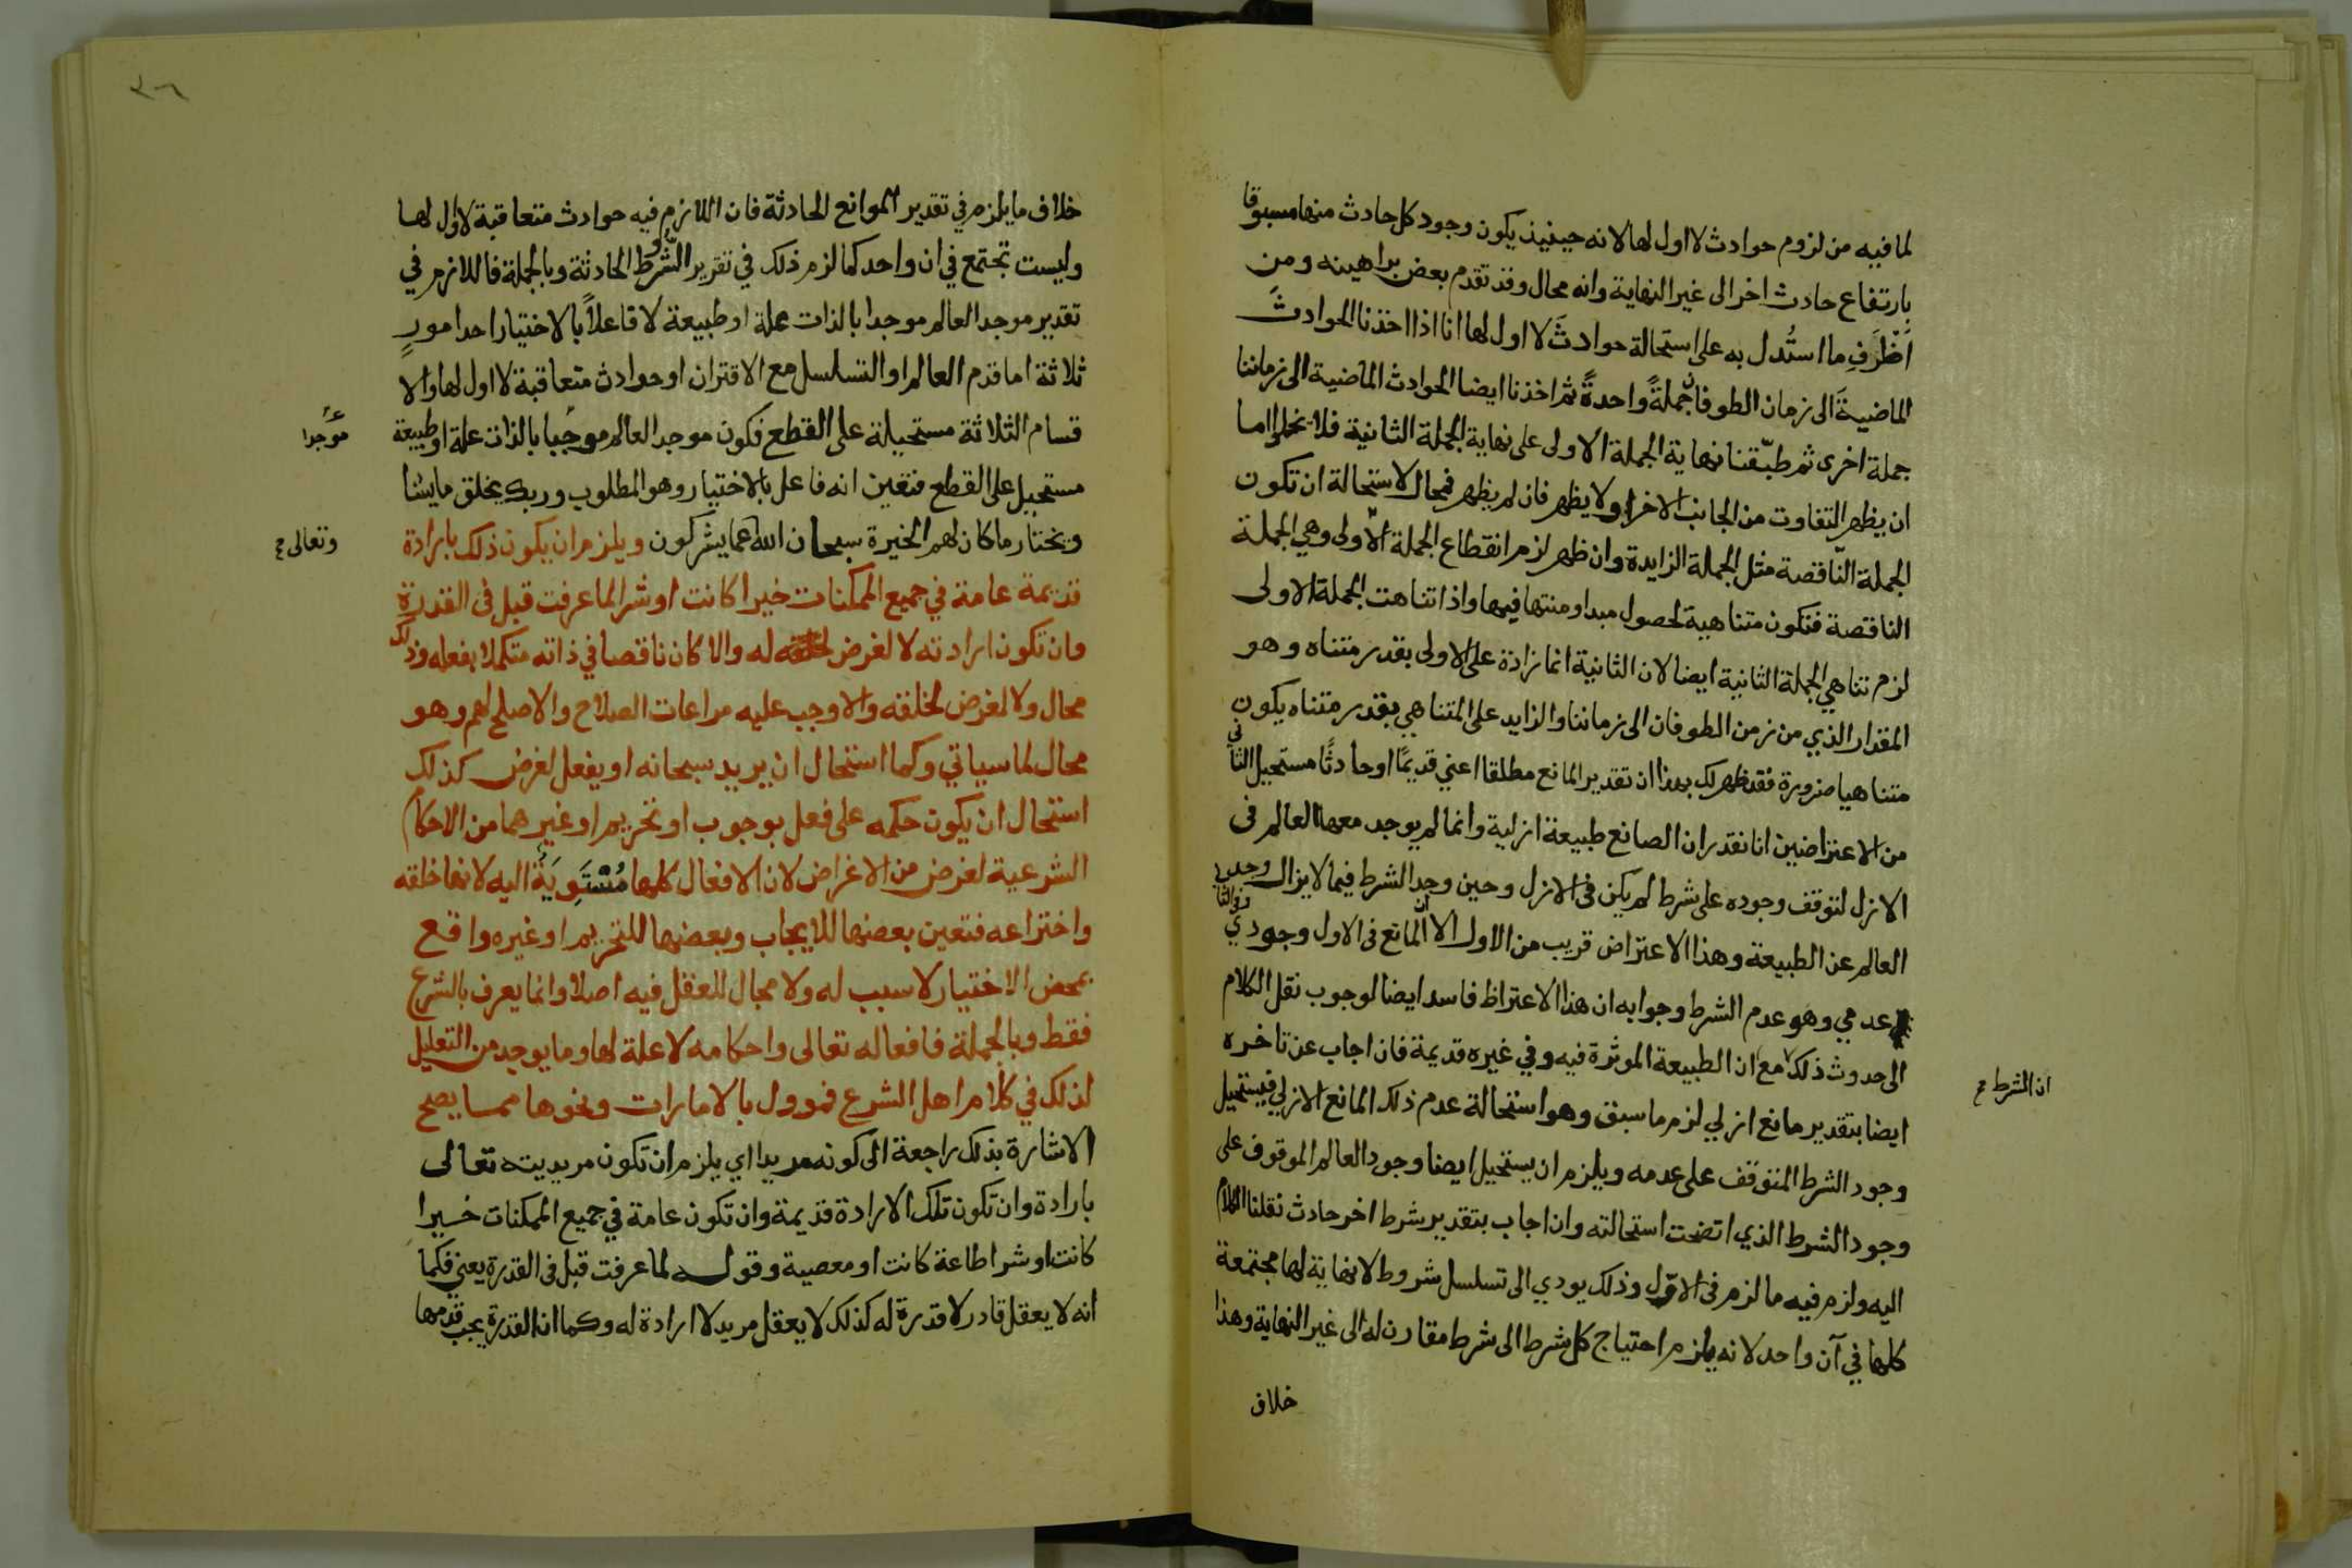 لما فيه من لزوم حوادث لا اول لها لانه حينيذ يكون وجود كل حادث منها مسبوقا
بارتفاع حادث اخر الى غير النهاية وانه محال وقد تقدم بعض براهينه ومن
اظرف ما استُدل به على استحالة حوادثَ لا اول لها انا اذا اخذنا الحوادث
الماضيةَ الى زمان الطوفان جملةً واحدةً ثم اخذنا ايضا الحوادث الماضية الى زماننا
جملة اخرى ثم طبّقنا نهاية الجملة الاولى على نهاية الجملة الثانية فلا يخلوا اما
ان يظهر التفاوت من الجانب الاخر او لا يظهر فان لم يظهر فمحال لاستحالة ان تكون
الجملة النّاقصة مثل الجملة الزايدة وان ظهر لزم انقطاع الجملة الاولى وهي الجملة
الناقصة فتكون متناهية لحصول مبدا ومنتها فيها واذا تناهت الجملة الاولى
لزم تناهي الجملة الثانية ايضا لان الثانية انما زادة على الاولى بقدر متناه وهو
المقدار الذي من زمن الطوفان الى زماننا والزايد على المتناهي بقدر متناه يكون
متناهيا ضرورة فقد ظهر لك بهذا ان تقدير المانع مطلقا اعني قديمًا او حادثًا مستحيل الثاني
من الاعتراضين انا نقدر ان الصانع طبيعة ازلية وانما لم يوجد معها العالم في
الازل لتوقف وجوده على شرط لم يكن في الازل وحين وجد الشرط فيما لا يزال وجد
العالم عن الطبيعة وهذا الاعتراض قريب من الاول الا ان المانع في الاول وجودي وفي الثاني
عدمي وهو عدم الشرط وجوابه ان هذا الاعتراظ فاسد ايضا لوجوب نقل الكلام
الى حدوث ذلك مع ان الطبيعة الموثرة فيه وفي غيره قديمة فان اجاب عن تاخره
ان الشرط
ايضا بتقدير مانع ازلي لزم ما سبق وهو استحالة عدم ذلك المانع الازلي فيستحيل
وجود الشرط المتوقف على عدمه ويلزم ان يستحيل ايضا وجود العالم الموقوف على
وجود الشرط الذي اتضحت استحالته وان اجاب بتقدير شرط اخر حادث نقلنا الكلام
اليه ولزم فيه ما لزم في الاوّل وذلك يودي الى تسلسل شروط لا نهاية لها مجتمعة
كلها في آن واحد لانه يلزم احتياج كل شرط الى شرط مقارن له الى غير النهاية وهذا
خلاف
خلاف ما يلزم في تقدير الموانع الحادثة فان اللازم فيه حوادث متعاقبة لا اول لها
وليست تجتمع في ان واحد كما لزم ذلك في تقرير الشروط الحادثة وبالجملة فاللازم في
تقدير موجد العالم موجدا بالذات علة او طبيعة لا فاعلاً بالاختيار احد امورٍ
ثلاثة اما قدم العالم او التسلسل مع الاقتران او حوادث متعاقبة لا اول لها والا
قسام الثلاثة مستحيلة على القطع فكون موجد العالم موجبا بالذات علة او طبيعة
موجدا
مستحيل على القطع فتعين انه فاعل بالاختيار وهو المطلوب وربك يخلق ما يشا
ويختار ما كان لهم الخيرة سبحان الله عما يشركون ويلزم ان يكون ذلك بارادة
وتعالى
قديمة عامة في جميع الممكنات خيرا كانت او شرا لما عرفت قبل في القدرة
وان تكون ارادته لا لغرض له والا كان ناقصا في ذاته متكملا بفعله وذلك
محال ولا لغرض لخلقه والا وجب عليه مراعات الصلاح والاصلح لهم وهو
محال لما سياتي وكما استحال ان يريد سبحانه او يفعل لغرض كذلك
استحال ان يكون حكمه على فعل بوجوب او تحريم او غيرهما من الاحكام
الشرعية لغرض من الاغراض لان الافعال كلها مُسْتَوِيَةٌ اليه لانها خلقه
واختراعه فتعين بعضها للايجاب وبعضها للتحريم او غيره واقع
بمحض الاختيار لا سبب له ولا مجال للعقل فيه اصلا وانما يعرف بالشرع
فقط وبالجملة فافعاله تعالى واحكامه لا علة لها وما يوجد من التعليل
لذلك في كلام اهل الشرع فموول بالامارات ونحوها مما يصح
الاشارة بذلك راجعة الى كونه مريدا اي يلزم ان تكون مريديته تعالى
بارادة وان تكون تلك الارادة قديمة وان تكون عامة في جميع الممكنات خيرا
كانت او شرا طاعة كانت او معصية وقوله لما عرفت قبل في القدرة يعني فكما
انه لا يعقل قادر لا قدرة له كذلك لا يعقل مريد لا ارادة له وكما ان القدرة يجب قدمها